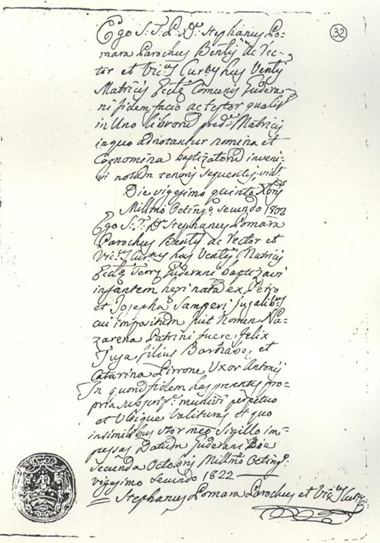 32
Ego S. T. D. Dr. Stephanus Lo-
mara Parochus Benefis de Vec-
tor et Vics Curæ hujus Ventis
Matricis Ecclæ Comunis Judera-
ni fidem facio ac testor qualit
in Uno librorum predæ Matricis
in quo adnotantur nomina et
Cognomina baptizatorum inveni-
vi notam tenoris sequentis, vizt
Die vigesimo quinta
Millmo Octingo secundo 1802
Ego S. T. Dr. Stephanus Lomara
Parochus Benefis de Vector et
Vics hujus Ventis Matricis
Ecclæ Terræ Juderani baptizavi
infantem heri nata ex Petro
et Josepha Samperi jugalibs
cui impositum fuit nomen Na-
zarena Patrini fuere felix
Tuja filius Barbaræ, et
Catarina Pirrone Uxor Antonii
In quorum fidem has presentes pro-
pria subscripts muniri perpetuo
et Ubique valituras et quo
insimilibus Utor meo Sigillo im-
pressas Datum Juderani Die
Secunda Octobris Millmo Octingo
vigesimo secundo 1822
Stephanus Lomara Parochus et Vics